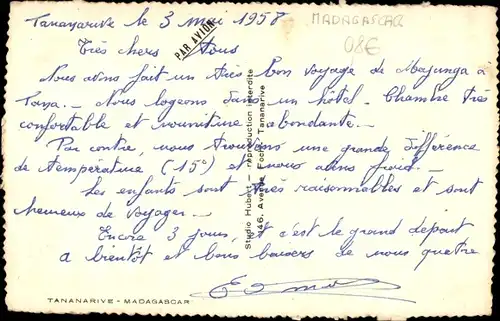 Tananarive le 3 mai 1958
MADAGASCAR
08€
PAR AVION
Très chers Tous
Nous avons fait un très bon voyage de Majunga à
Tana. - Nous logeons dans un hôtel. Chambre très
confortable et nourriture abondante. -
Par contre nous trouvons une grande différence
de température (15°) et nous avons froid. -
Les enfants sont très raisonnables et sont
heureux de voyager. -
Encore 3 jours et c'est le grand départ
à bientôt et bons baisers de nous quatre
Studio Hubert - reproduction interdite
46, Avenue Foch, Tananarive
TANANARIVE - MADAGASCAR